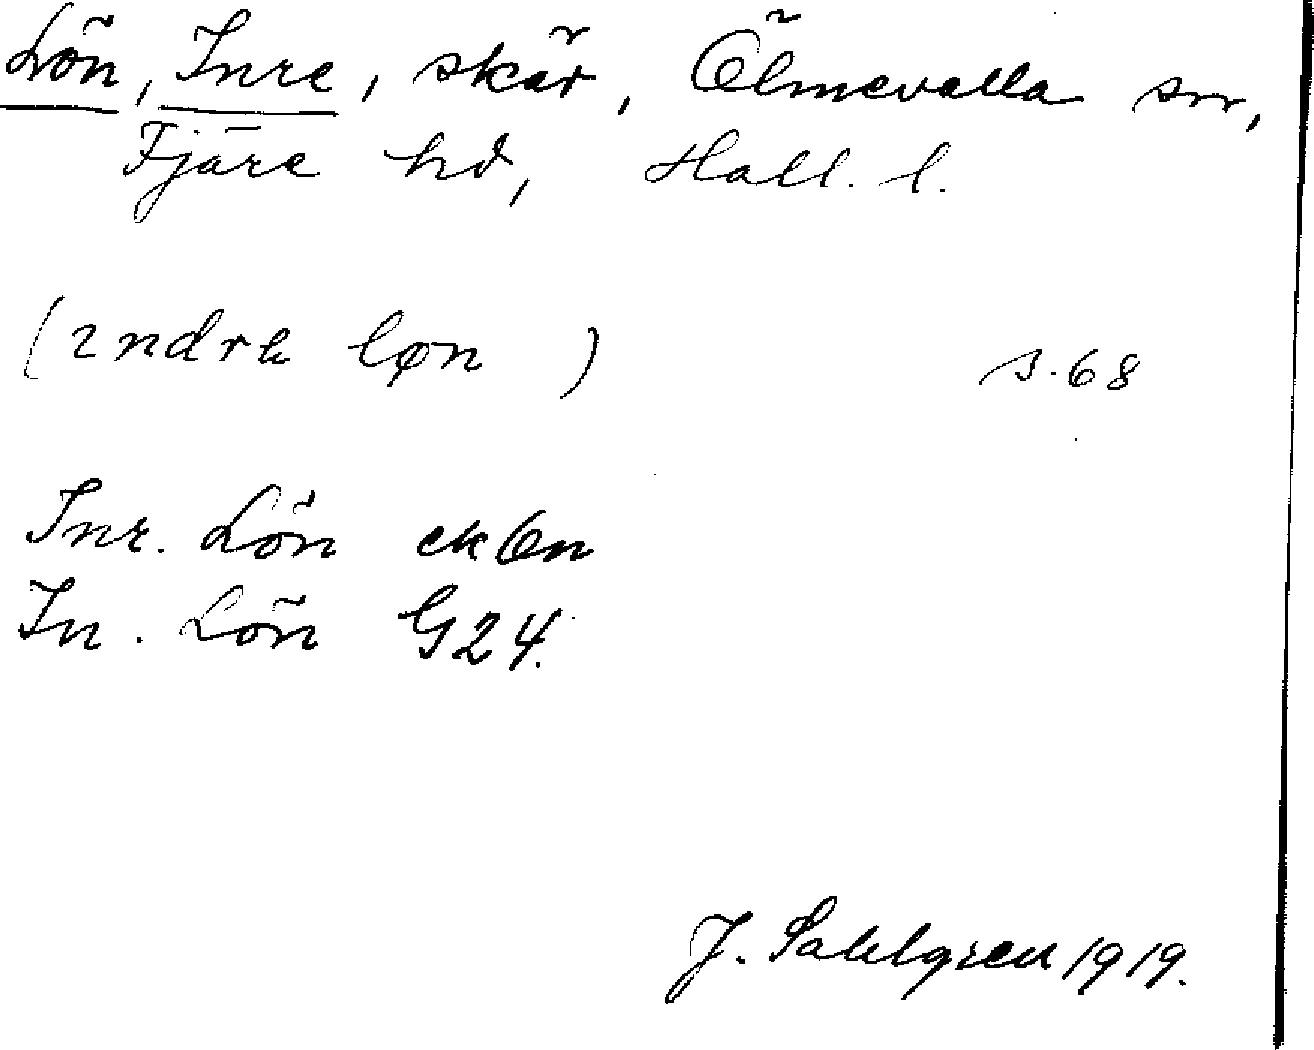 Lön, Inre, skär, Ölmevalla sn,
Fjäre hd, Hall. l.
(indre løn) s. 68
Inr. Lön ekbn
In. Lön G24.
J. Sahlgren 1919.